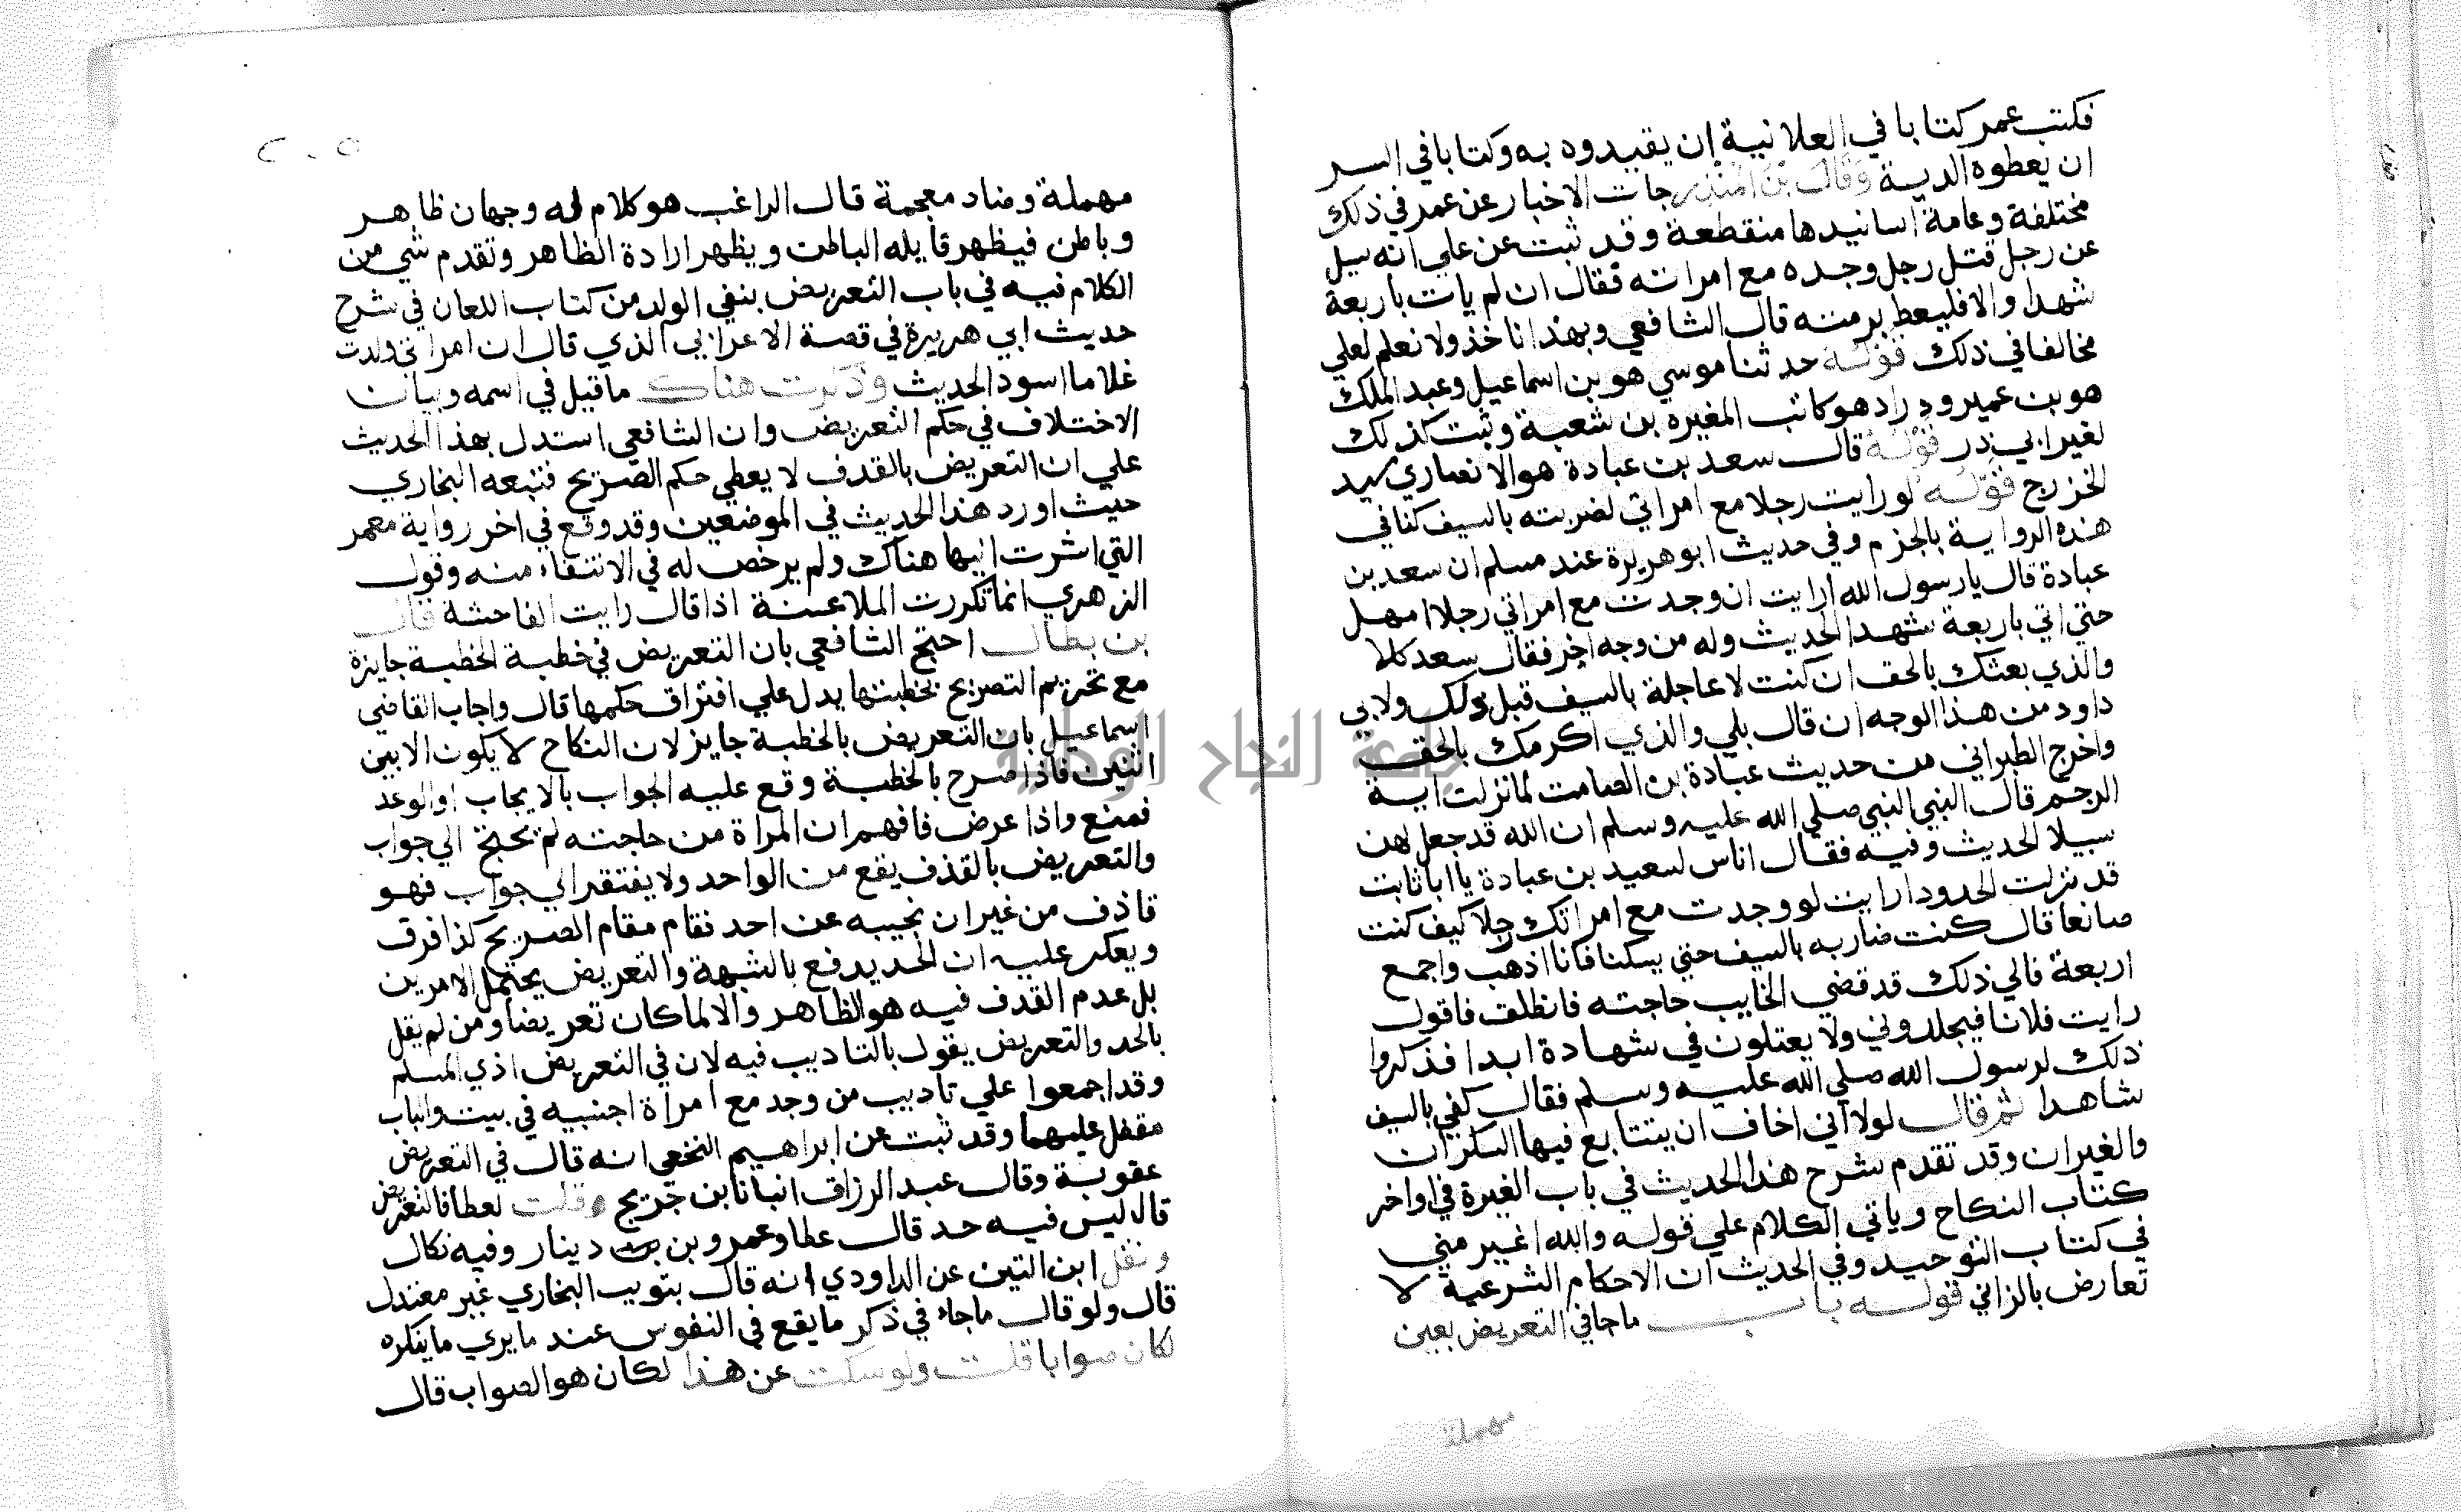 فكتب عمر كتابا في العلانية ان يقيدوه به وكتابا في السر
ان يعطوه الدية وقال بن المنذر جات الاخبار عن عمر في ذلك
مختلفة وعامة اسانيدها منقطعة وقد ثبت عن علي انه سيل
عن رجل قتل رجل وجده مع امراته فقال ان لم يات باربعة
شهدا والا فليعط برمته قال الشافعي وبهذا ناخذ ولا نعلم لعلي
مخالفا في ذلك قوله حدثنا موسي هو بن اسماعيل وعبد الملك
هو بن عمير ودراد هو كاتب المغيره بن شعبة وثبت كذلك
لغير ابي ذر قوله قال سعد بن عبادة هو الانصاري سيد
الخزرج قوله لو رايت رجلا مع امراتي لضربته بالسيف كذا في
هذه الرواية بالجزم وفي حديث ابو هريرة عند مسلم ان سعد بن
عبادة قال يا رسول الله ارايت ان وجدت مع امراتي رجلا امهل
حتي اتي باربعة شهدا الحديث وله من وجه اخر فقال سعد كلا
والذي بعثك بالحق ان كنت لاعاجلة بالسيف قبل ذلك ولابي
داود من هذا الوجه ان قال بلي والذي اكرمك بالحق
واخرج الطبراني من حديث عبادة بن الصامت لما نزلت اية
الرجم قال النبي النبي صلي الله عليه وسلم ان الله قد جعل لهن
سبيلا الحديث وفيه فقال اناس لسعيد بن عبادة يا ابا ثابت
قد نزلت الحدود ارايت لو وجدت مع امراتك رجلا كيف كنت
صانعا قال كنت ضاربه بالسيف حتي يسكنا فانا اذهب واجمع
اربعة فالي ذلك قد قضي الخايب حاجته فانطلق فاقول
رايت فلانا فيجلدوني ولا يعتلون في شهادة ابدا فذكروا
ذلك لرسول الله صلي الله عليه وسلم فقال كفي بالسيف
شاهدا ثم قال لولا اني اخاف ان يتتابع فيها السكران
والغيران وقد تقدم شرح هذا الحديث في باب الغيرة في اواخر
كتاب النكاح وياتي الكلام علي قوله والله اغير مني
في كتاب التوحيد وفي الحديث ان الاحكام الشرعية لا
تعارض بالزاني قوله باب ماجا في التعريض بعين
مهملة
٢٠٥
مهملة وضاد معجمة قال الراغب هو كلام له وجهان ظاهر
وباطن فيظهر قايله الباطن ويظهر ارادة الظاهر وتقدم شي من
الكلام فيه في باب التعريض بنفي الولد من كتاب اللعان في شرح
حديث ابي هريرة في قصة الاعرابي الذي قال ان امراتي ولدت
غلاما اسود الحديث وذكرت هناك ما قيل في اسمه وبيان
الاختلاف في حكم التعريض وان الشافعي استدل بهذا الحديث
علي ان التعريض بالقدف لا يعطي حكم الصريح فتبعه البخاري
حيث اورد هذا الحديث في الموضعين وقد وقع في اخر رواية معمر
التي اشرت اليها هناك ولم يرخص له في الانتفاء منه وقول
الزهري انما تكررت الملاعنة اذا قال رايت الفاحشة قال
بن بطال احتج الشافعي بان التعريض في خطبة الخطبة جايزة
مع تحريم التصريح بخطبتها يدل علي افتراق حكمها قال واجاب القاضي
اسماعيل بان التعريض بالخطبة جايز لان النكاح لا يكون الا بين
اثنين فاذا صرح بالخطبة وقع عليه الجواب بالايجاب او الوعد
فمنع واذا عرض فافهم ان المراة من حاجته لم يحتج الي جواب
والتعريض بالقذف يقع من الواحد ولا يفتقر الي جواب فهو
قاذف من غير ان يجيبه عن احد نقام مقام الصريح كذا فرق
ويعكر عليه ان الحد يدفع بالشبهة والتعريض يحتمل الامرين
بل عدم القدف فيه هو الظاهر والا لما كان تعريضا ومن لم يقل
بالحد والتعريض يقول بالتاديب فيه لان في التعريض اذي المسلم
وقد اجمعوا علي تاديب من وجد مع امراة اجنبيه في بيت والباب
مقفل عليهما وقد ثبت عن ابراهيم النخعي انه قال في التعريض
عقوبة وقال عبد الرزاق انبانا بن جريج قلت لعطا فالتعريض
قال ليس فيه حد قال عطا وعمرو بن دينار وفيه نكال
ونقل ابن التين عن الداودي انه قال بتويب البخاري غير معتدل
قال ولو قال ماجاء في ذكر ما يقع في النفوس عند ما يري ما ينكره
لكان صوابا قلت ولو سكت عن هذا لكان هو الصواب قال
جامعة النجاح الوطنية